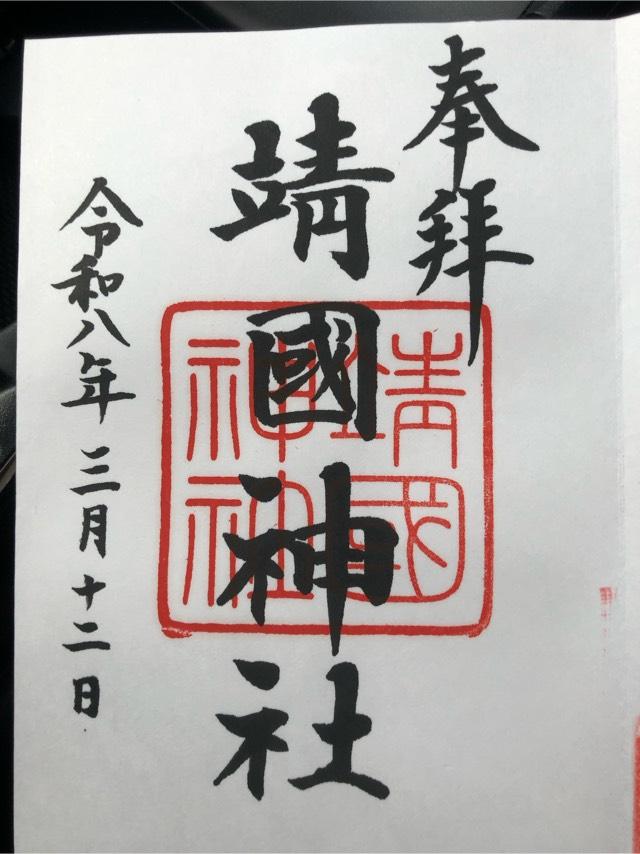 奉拝
靖國神社
靖國神社
令和八年三月十二日